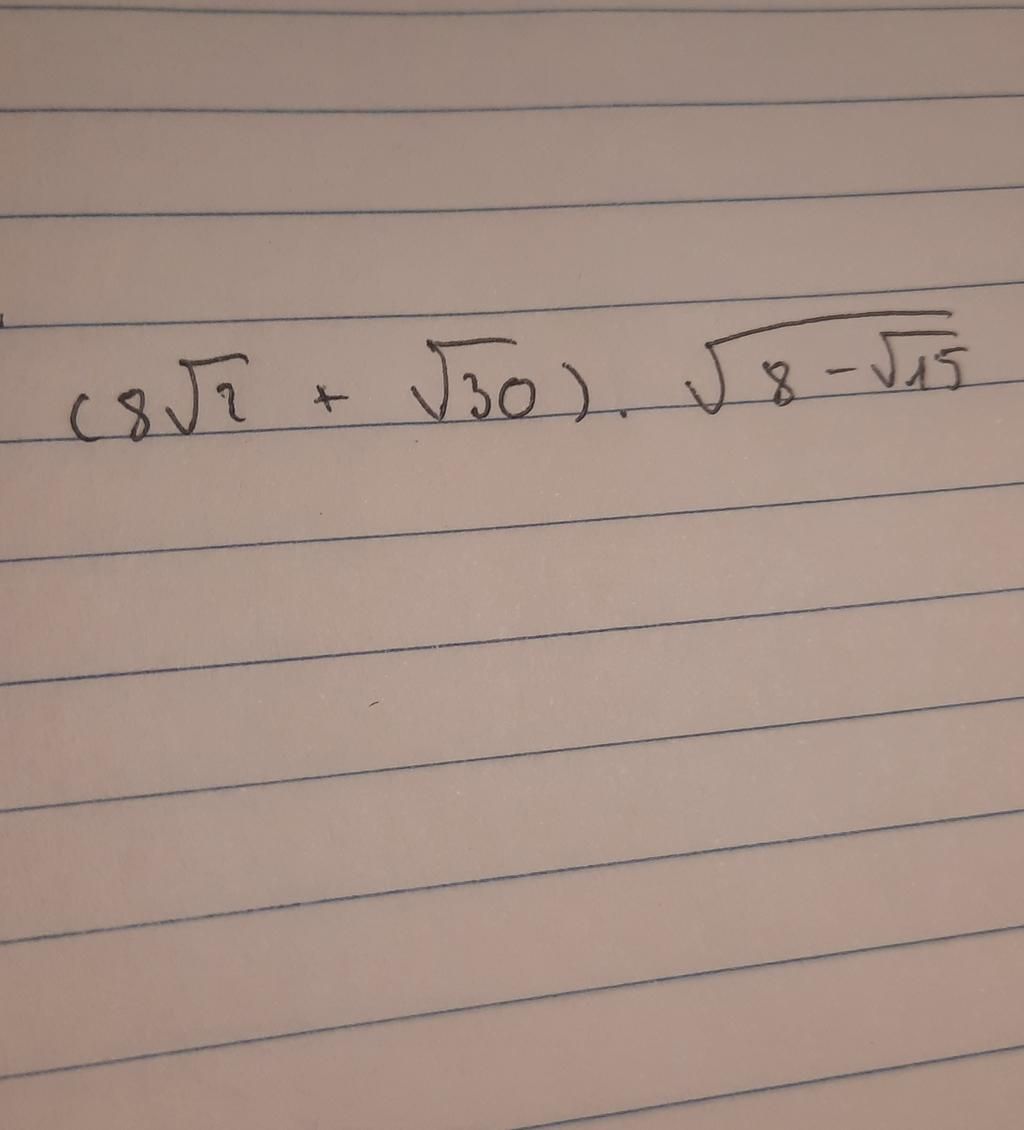 (8√2 + √30). √(8 - √15)